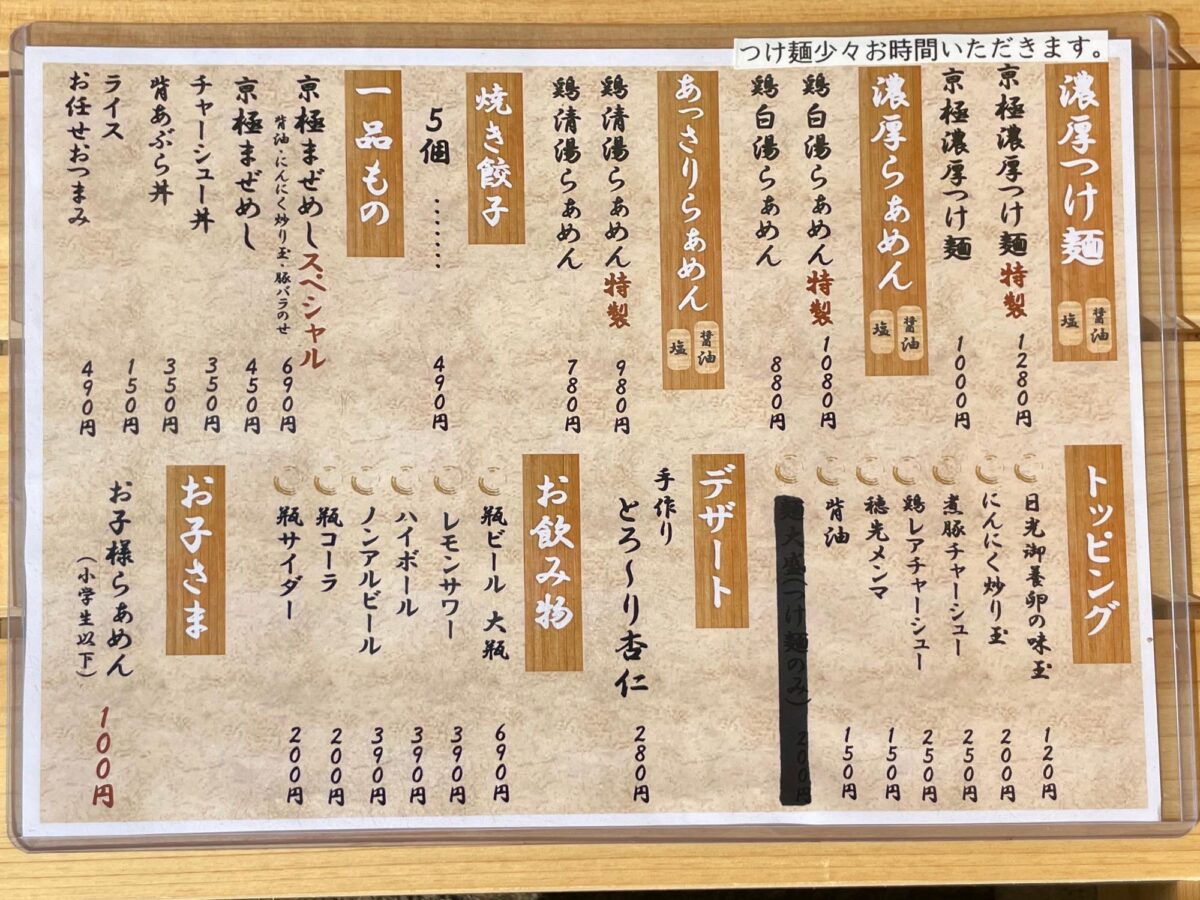 つけ麺少々お時間いただきます。
濃厚つけ麺
醤油
塩
京極濃厚つけ麺特製 1280円
京極濃厚つけ麺 1000円
濃厚らぁめん
醤油
塩
鶏白湯らぁめん特製 1080円
鶏白湯らぁめん 880円
あっさりらぁめん
醤油
塩
鶏清湯らぁめん特製 980円
鶏清湯らぁめん 780円
焼き餃子
5個 ……… 490円
一品もの
京極まぜめしスペシャル 690円
背油・にんにく炒り玉・豚バラのせ
京極まぜめし 450円
チャーシュー丼 350円
背あぶら丼 350円
ライス 150円
お任せおつまみ 490円
トッピング
日光御養卵の味玉 120円
にんにく炒り玉 200円
煮豚チャーシュー 250円
鶏レアチャーシュー 250円
穂先メンマ 150円
背油 150円
麺大盛(つけ麺のみ) 200円
デザート
手作り
とろ〜り杏仁 280円
お飲み物
瓶ビール 大瓶 690円
レモンサワー 390円
ハイボール 390円
ノンアルビール 390円
瓶コーラ 200円
瓶サイダー 200円
お子さま
お子様らぁめん 100円
(小学生以下)